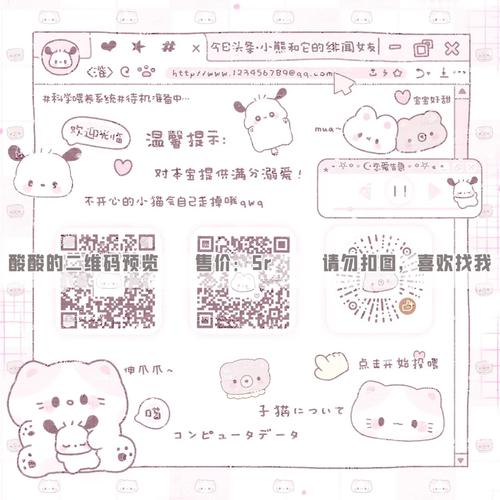 今日头条·小熊和它的绯闻女友
http://www.123456789@qq.com
#科学喂养系统#待机准备中…
宝宝好甜
欢迎光临
温馨提示:
mua~
对本宝提供满分溺爱!
恋爱告急
不开心的小猫会自己走掉哦qwq
酸酸的二维码预览 售价：5r 请勿扣图，喜欢找我
伸爪爪~
点击开始投喂
喵
子猫について
コンピュータデータ